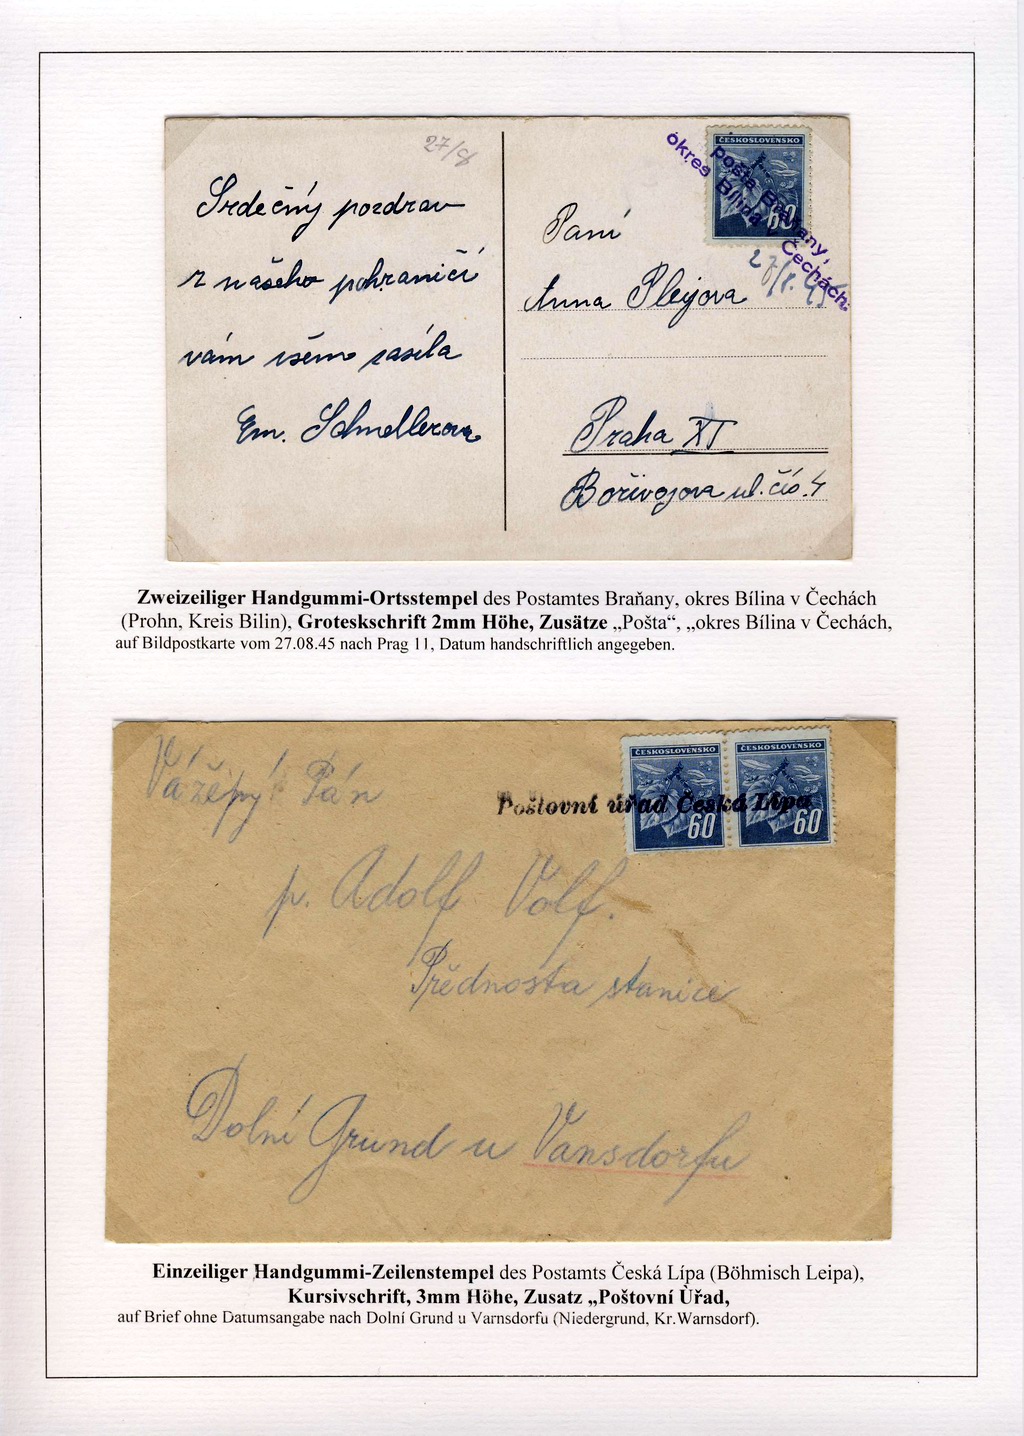 27/8
Srdečný pozdrav
z našeho pohraničí
vám všem zasílá
Em. Schnellerova
ČESKOSLOVENSKO
60
pošta Braňany,
okres Bílina v Čechách.
27/8. 45
Paní
Anna Plejova
Praha XI
Bořivojova ul. čís. 4
Zweizeiliger Handgummi-Ortsstempel des Postamtes Braňany, okres Bílina v Čechách
(Prohn, Kreis Bilin), Groteskschrift 2mm Höhe, Zusätze „Pošta“, „okres Bílina v Čechách,
auf Bildpostkarte vom 27.08.45 nach Prag 11, Datum handschriftlich angegeben.
ČESKOSLOVENSKO
60
ČESKOSLOVENSKO
60
Poštovní úřad Česká Lípa
Pán
p. Adolf Volf.
Přednosta stanice
Dolní Grund u Vansdorfu
Einzeiliger Handgummi-Zeilenstempel des Postamts Česká Lípa (Böhmisch Leipa),
Kursivschrift, 3mm Höhe, Zusatz „Poštovní Ùřad,
auf Brief ohne Datumsangabe nach Dolní Grund u Varnsdorfu (Niedergrund, Kr.Warnsdorf).